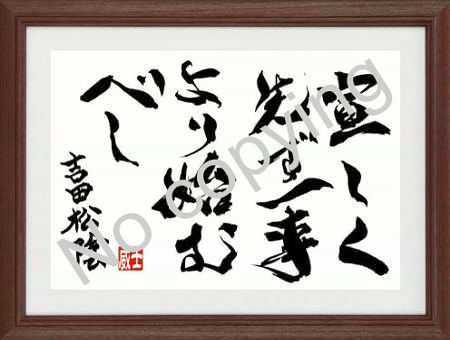 宜しく
先ず一事
より始む
べし
吉田松陰
No copying